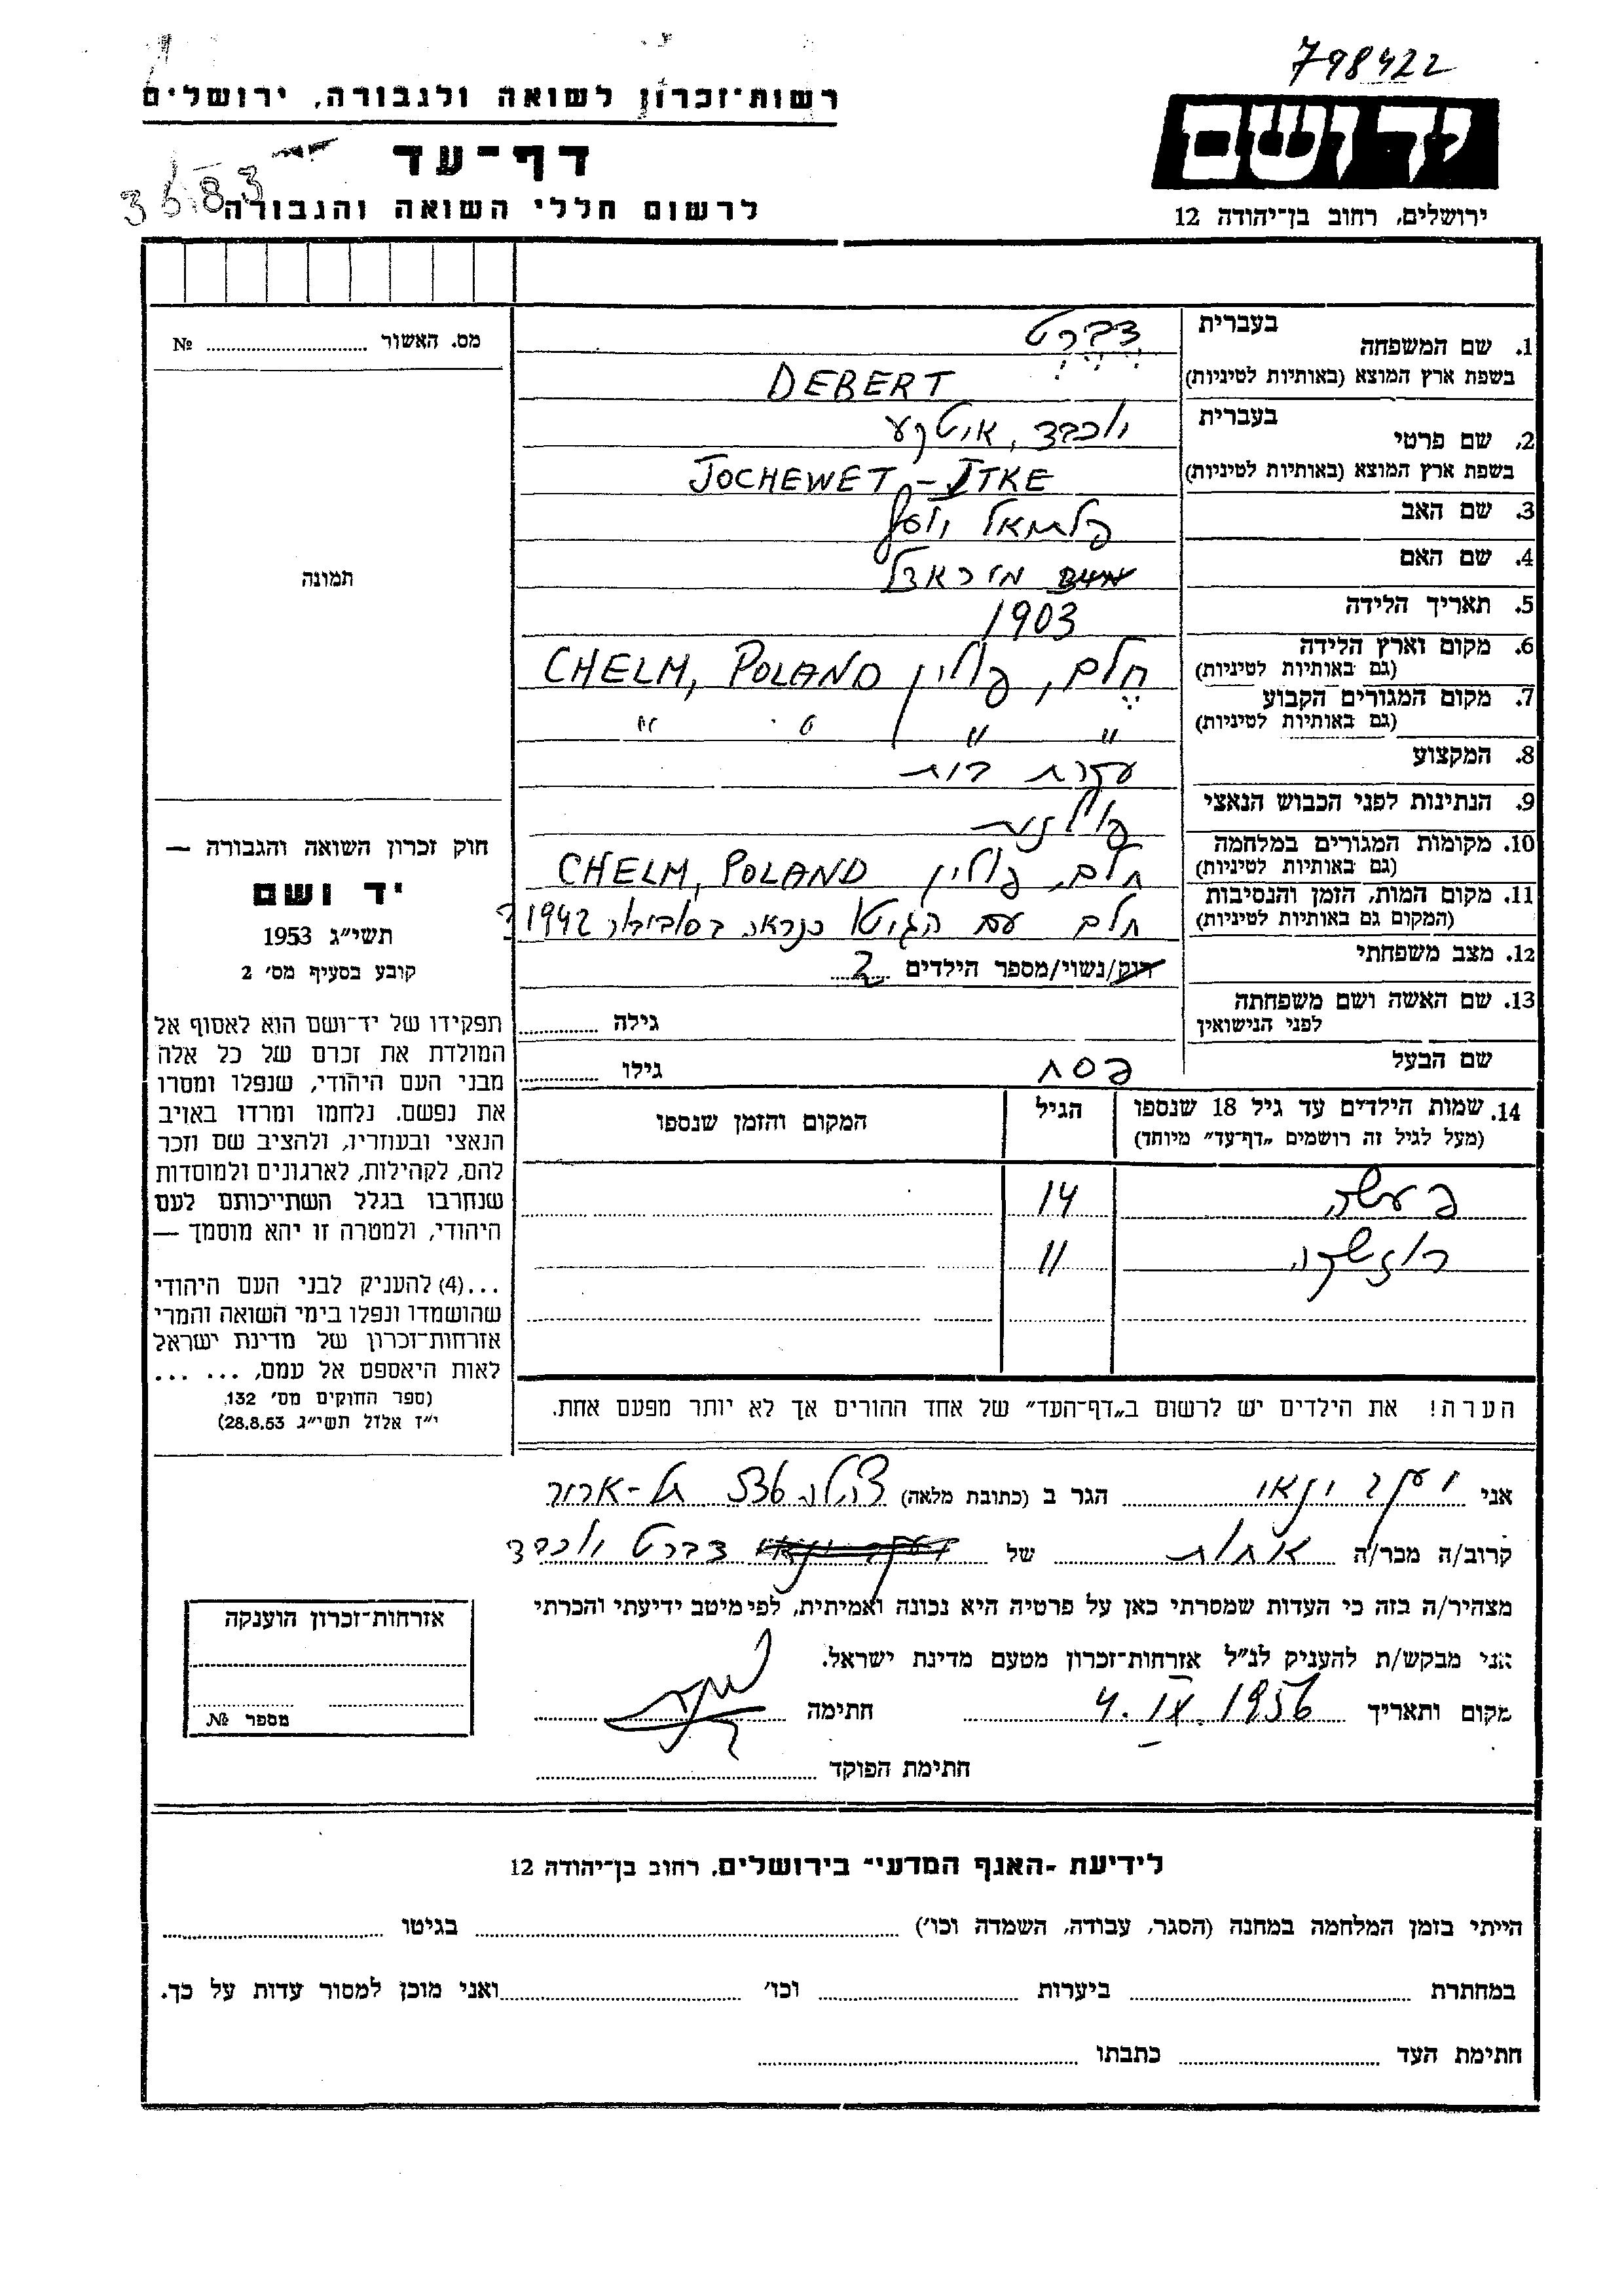 798422
יד ושם
ירושלים, רחוב בן־יהודה 12
רשות־זכרון לשואה ולגבורה, ירושלים
דף־עד
לרשום חללי השואה והגבורה
מס. האשור № ........
תמונה
חוק זכרון השואה והגבורה —
יד ושם
תשי״ג 1953
קובע בסעיף מס׳ 2
תפקידו של יד־ושם הוא לאסוף אל
המולדת את זכרם של כל אלה
מבני העם היהודי, שנפלו ומסרו
את נפשם. נלחמו ומרדו באויב
הנאצי ובעוזריו, ולהציב שם וזכר
להם, לקהילות, לארגונים ולמוסדות
שנחרבו בגלל השתייכותם לעם
היהודי, ולמטרה זו יהא מוסמך —
...(4) להעניק לבני העם היהודי
שהושמדו ונפלו בימי השואה והמרי
אזרחות־זכרון של מדינת ישראל
לאות היאספם אל עמם, ... ...
(ספר החוקים מס׳ 132,
י״ז אלול תשי״ג 28.8.53)
1. שם המשפחה בעברית דברט
בשפת ארץ המוצא (באותיות לטיניות) DEBERT
2. שם פרטי בעברית יוכבד, איטקע
בשפת ארץ המוצא (באותיות לטיניות) JOCHEWET - ITKE
3. שם האב יוסף
4. שם האם
5. תאריך הלידה 1903
6. מקום וארץ הלידה (גם באותיות לטיניות) חלם, פולין CHELM, POLAND
7. מקום המגורים הקבוע (גם באותיות לטיניות) " " " "
8. המקצוע עקרת בית
9. הנתינות לפני הכבוש הנאצי פולנית
10. מקומות המגורים במלחמה (גם באותיות לטיניות) חלם, פולין CHELM, POLAND
11. מקום המות, הזמן והנסיבות (המקום גם באותיות לטיניות) חלם עם הגיטו כנראה בסוביבור 1942 ?
12. מצב משפחתי רווק/נשוי/מספר הילדים 2
13. שם האשה ושם משפחתה לפני הנישואין גילה ........
שם הבעל פסח גילו ........
14. שמות הילדים עד גיל 18 שנספו (מעל לגיל זה רושמים „דף־עד״ מיוחד) הגיל המקום והזמן שנספו
פעשה 14
רוזשקה 11
הערה! את הילדים יש לרשום ב„דף־העד״ של אחד ההורים אך לא יותר מפעם אחת.
אני יעקב הגר ב (כתובת מלאה) תל-ארזה
קרוב/ה מכר/ה אחות של דברט יוכבד
מצהיר/ה בזה כי העדות שמסרתי כאן על פרטיה היא נכונה ואמיתית, לפי מיטב ידיעתי והכרתי
אני מבקש/ת להעניק לנ״ל אזרחות־זכרון מטעם מדינת ישראל.
מקום ותאריך 4.IX.1956 חתימה
חתימת הפוקד ........
אזרחות־זכרון הוענקה
מספר №
לידיעת ״האגף המדעי״ בירושלים, רחוב בן־יהודה 12
הייתי בזמן המלחמה במחנה (הסגר, עבודה, השמדה וכו׳) ........ בגיטו ........
במחתרת ........ ביערות ........ וכו׳ ........ ואני מוכן למסור עדות על כך.
חתימת העד ........ כתבתו ........